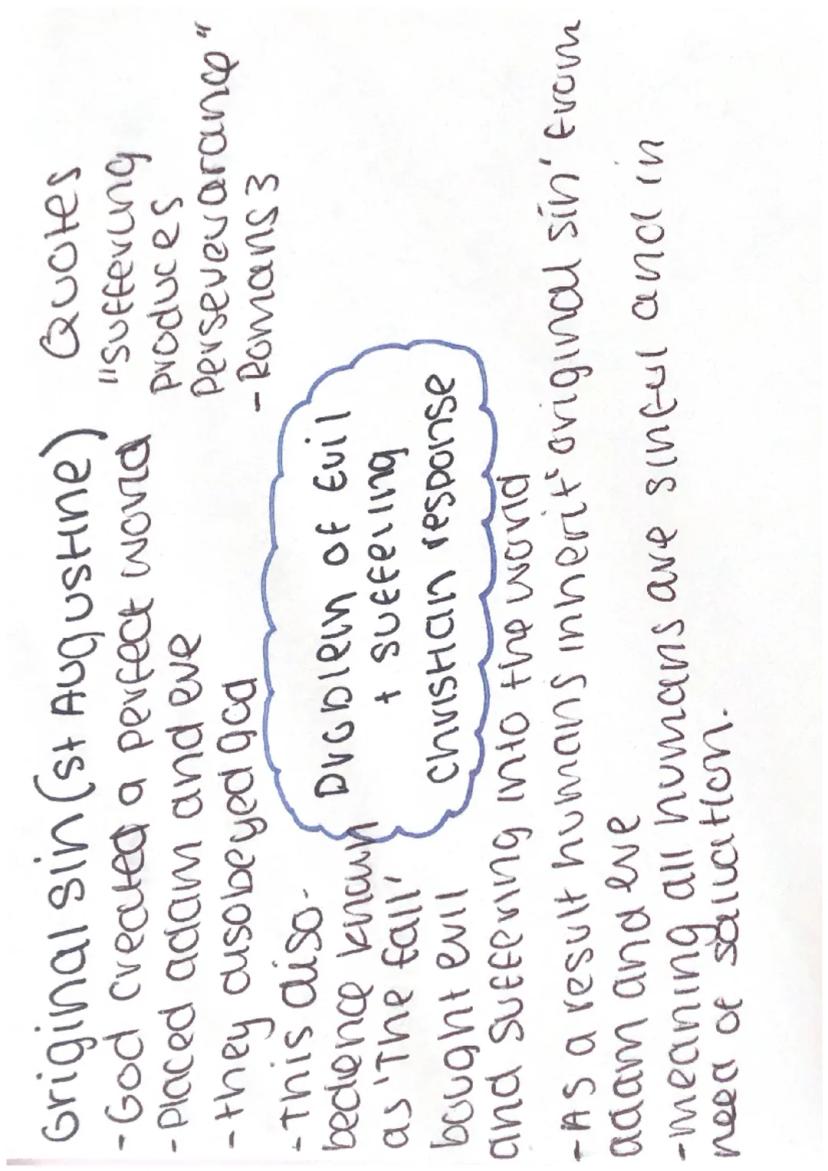 Original sin (st Augustine)
- God created a perfect world
- Placed adam and eve
- they disobeyed god
- This diso-
bedience known
as 'The fall'
bought evil
and suffering into the world
- As a result humans inherit 'original sin' from
adam and eve
- meaning all humans are sinful and in
need of salvation.
Problem of Evil
+ suffering
Christian response
Quotes
"suffering
produces
perseverance"
- Romans 3